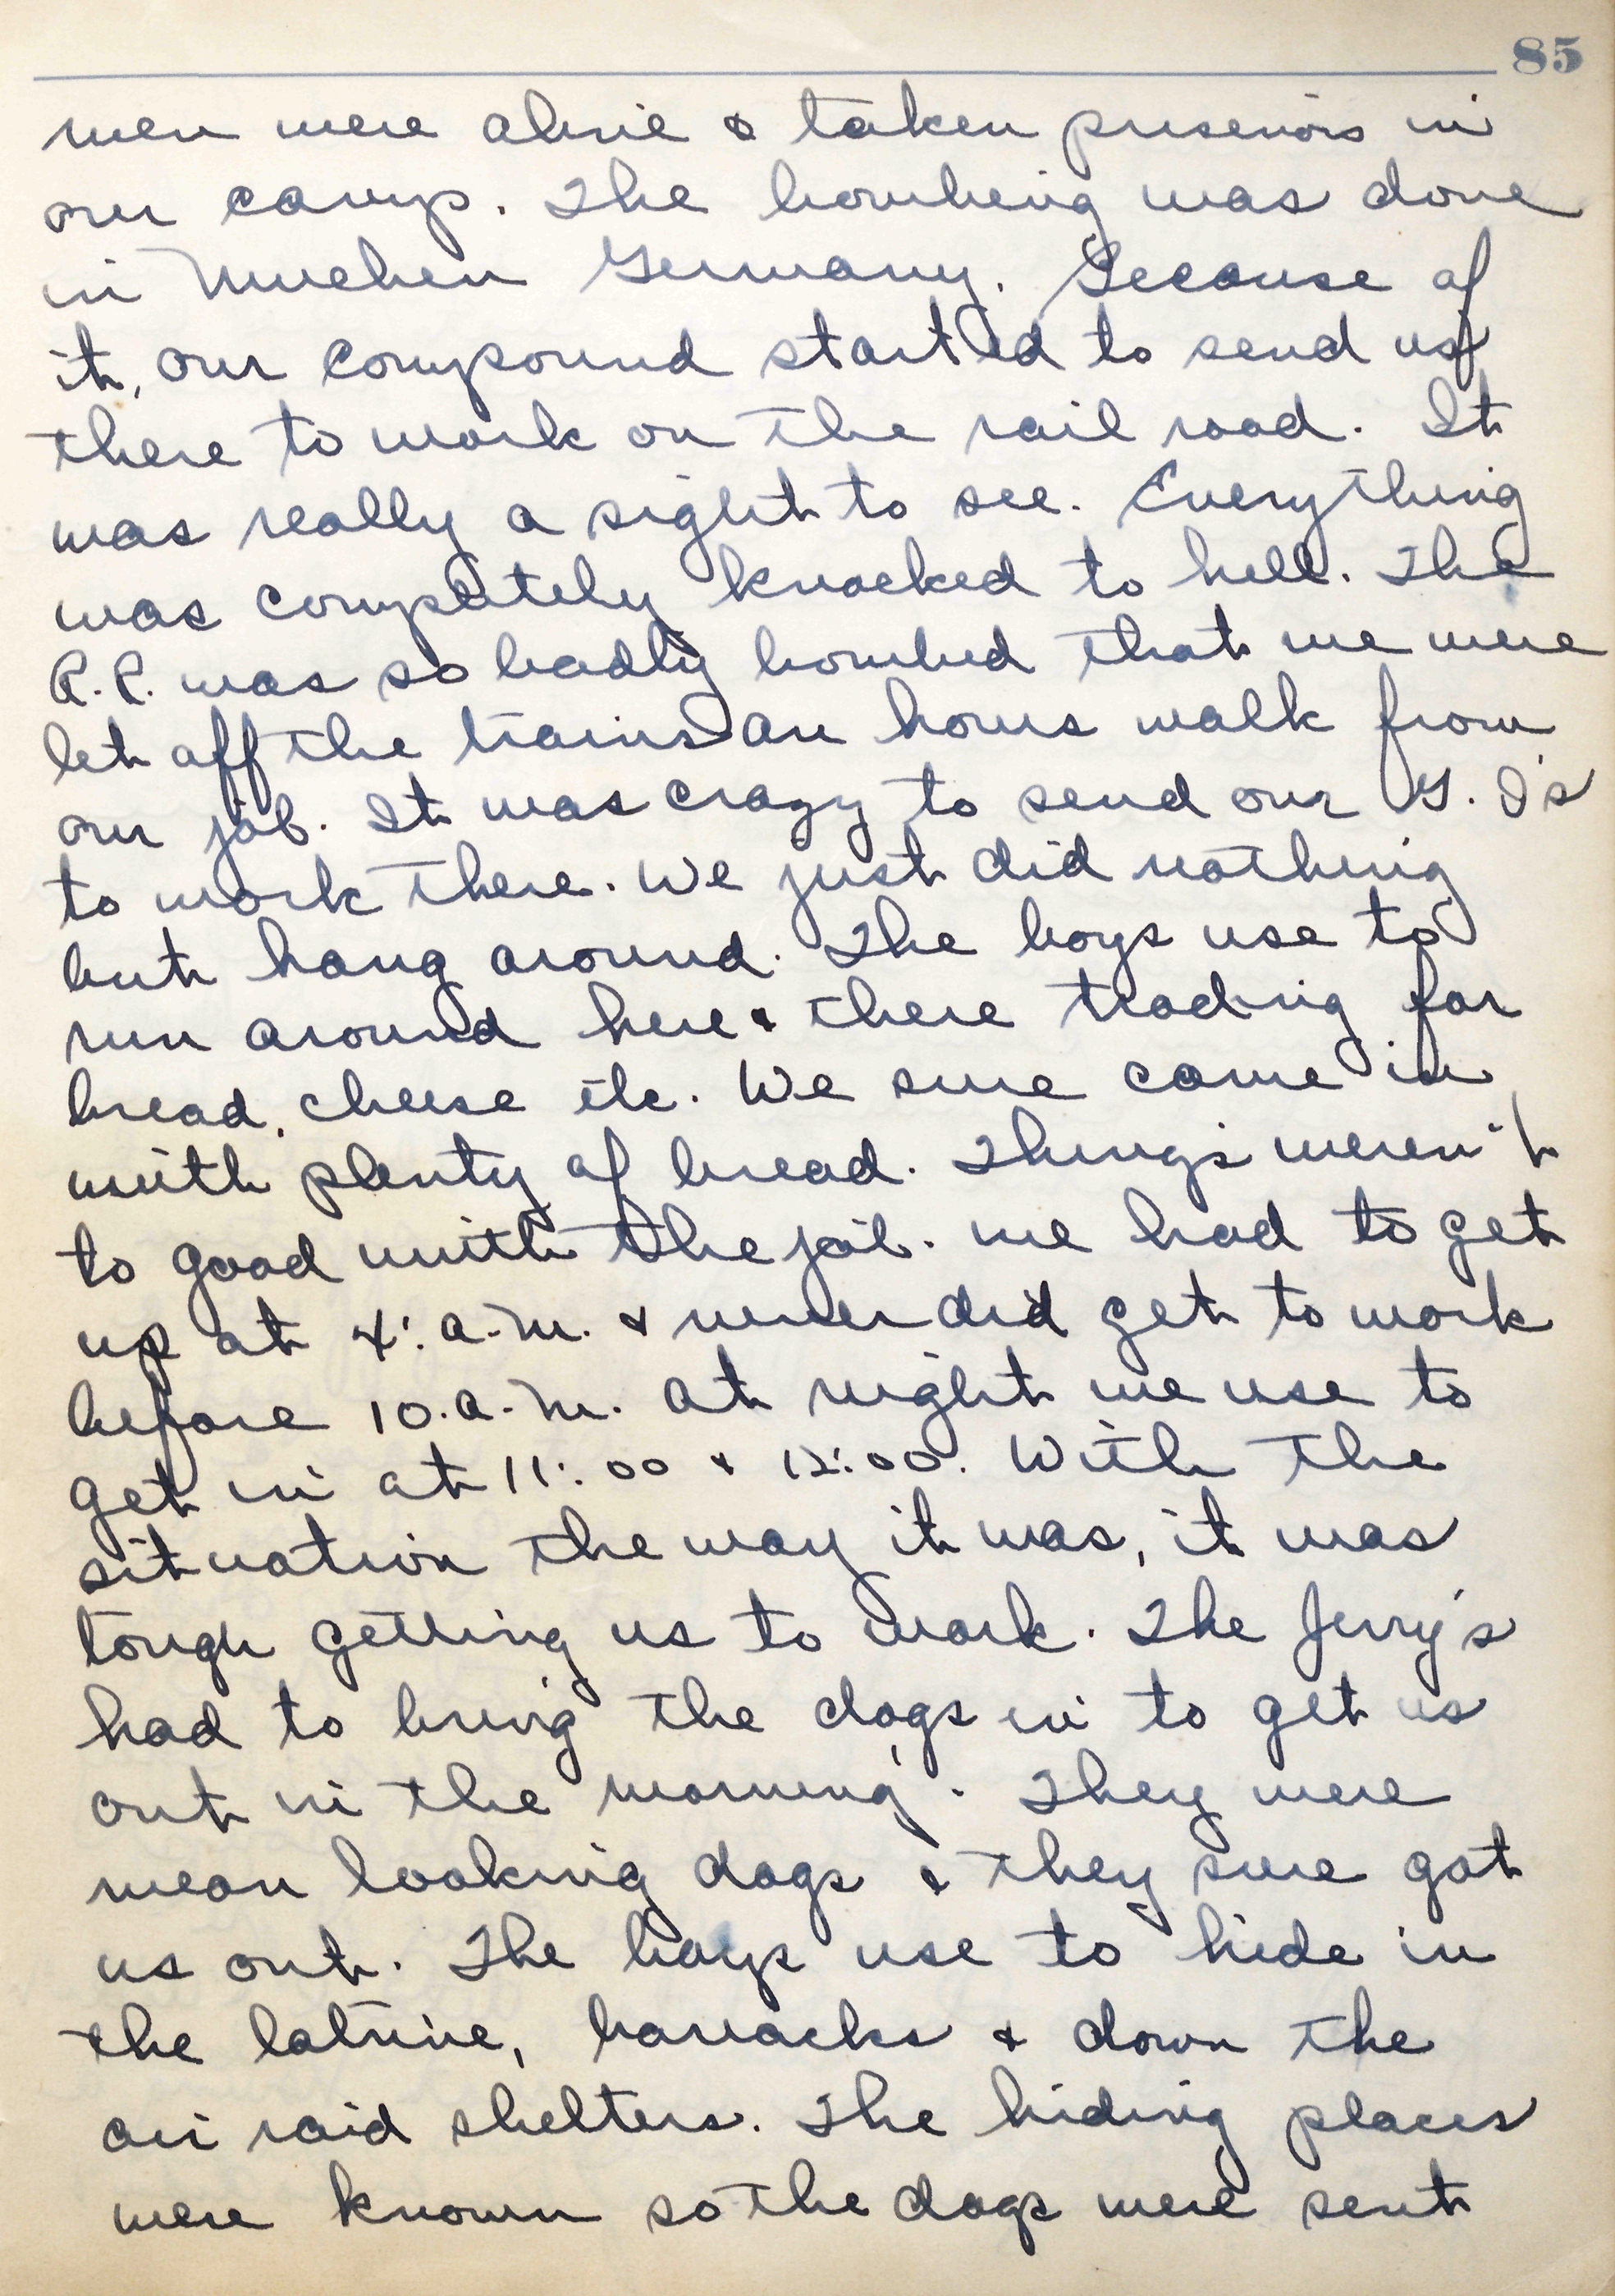 85
men were alive & taken prisenors in
our camp. The bombing was done
in Muchen Germany. Because of
it, our compound started to send us
there to work on the rail road. It
was really a sight to see. Everything
was completely knocked to hell. The
R.R. was so badly bombed that we were
let off the trains an hours walk from
our job. It was crazy to send our G. I's
to work there. We just did nothing
but hang around. The boys use to
run around here & there trading for
bread, cheese etc. We sure came in
with plenty of bread. Things weren't
to good with the job. We had to get
up at 4: a.m. & never did get to work
before 10. a.m. At night we use to
get in at 11:00 & 12:00. With the
situation the way it was, it was
tough getting us to work. The Jerry's
had to bring the dogs in to get us
out in the morning. They were
mean looking dogs & they sure got
us out. The boys use to hide in
the latrine, barracks & down the
air raid shelters. The hiding places
were known so the dogs were sent